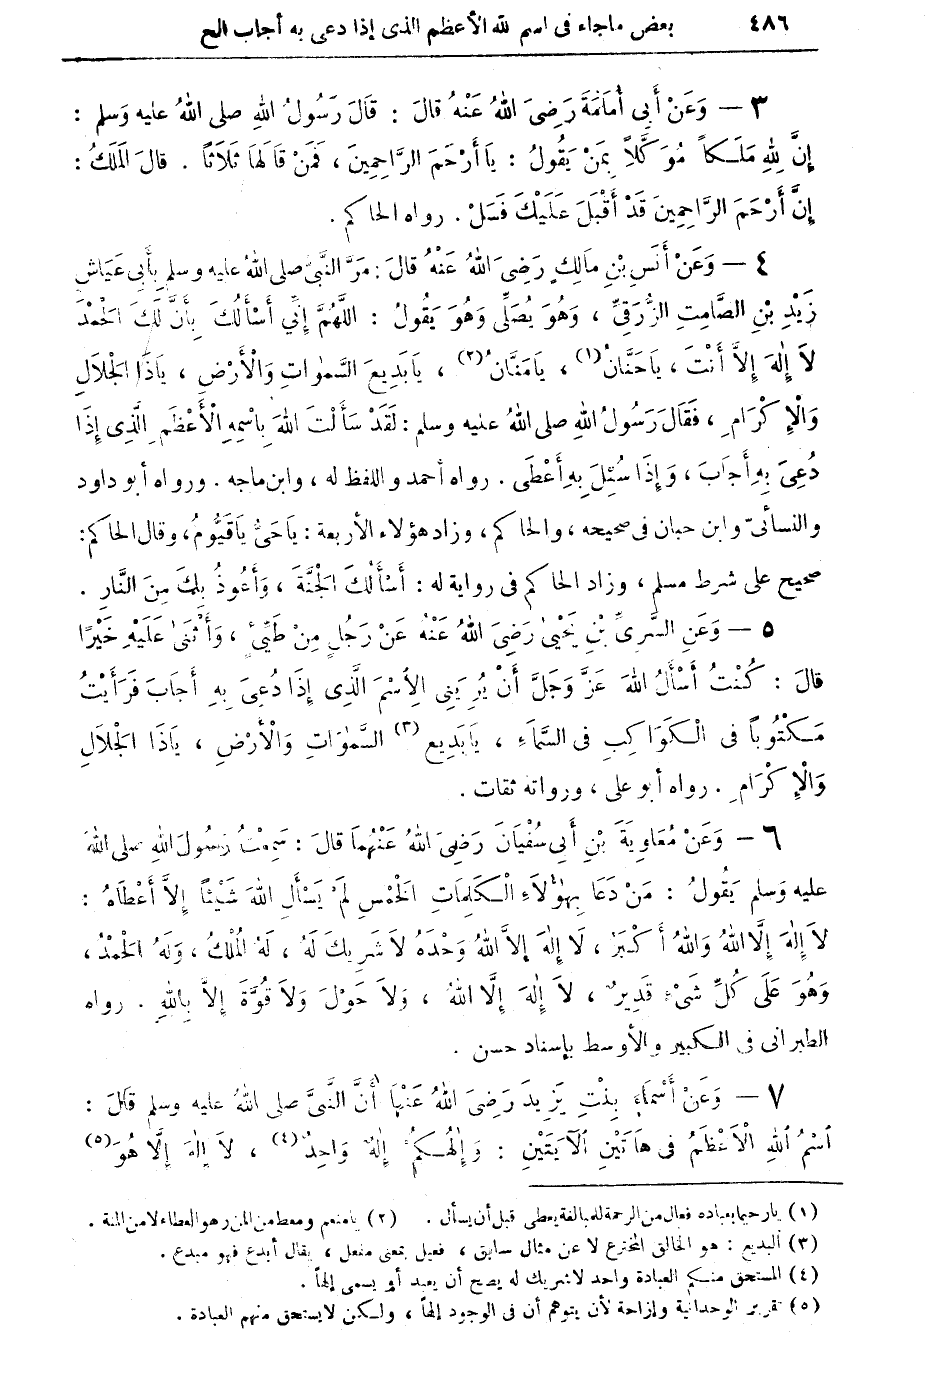 ٤٨٦ بعض ماجاء فى اسم لله الأعظم الذى إذا دعى به أجاب الخ
٣ — وَعَنْ أَبِى أُمَامَةَ رَضِىَ اللهُ عَنْهُ قالَ : قَالَ رَسُولُ اللهِ صلى اللهُ عليه وَسلم :
إِنَّ لِلهِ مَلَكاً مُوَكَّلاً بِمَنْ يَقُولُ : يَا أَرْحَمَ الرَّاحِمِينَ ، فَمَنْ قَالَهَا ثَلَاثاً . قالَ الْمَلَكُ :
إِنَّ أَرْحَمَ الرَّاحِمِينَ قَدْ أَقْبَلَ عَلَيْكَ فَسَلْ . رواه الحاكم .
٤ — وَعَنْ أَنَسِ بْنِ مَالِكٍ رَضِىَ اللهُ عَنْهُ قالَ : مَرَّ النَّبِىُّ صلى اللهُ عليه وسلم بِأَبِى عَيَّاشٍ
زَيْدِ بْنِ الصَّامِتِ الزُّرَقِىِّ ، وَهُوَ يُصَلِّى وَهُوَ يَقُولُ : اللَّهُمَّ إِنِّي أَسْأَلُكَ بِأَنَّ لَكَ الْحَمْدَ
لاَ إِلٰهَ إِلاَّ أَنْتَ ، يَاحَنَّانُ (١) ، يَامَنَّانُ (٢) ، يَابَدِيعَ السَّمٰوَاتِ وَالْأَرْضِ ، يَاذَا الْجَلَالِ
وَالْإِكْرَامِ ، فَقَالَ رَسُولُ اللهِ صلى اللهُ عليه وسلم : لَقَدْ سَأَلْتَ اللهَ بِاسْمِهِ الْأَعْظَمِ الَّذِى إِذَا
دُعِىَ بِهِ أَجَابَ ، وَإِذَا سُئِلَ بِهِ أَعْطَى . رواه أحمد واللفظ له ، وابن ماجه . ورواه أبو داود
والنسائىّ وابن حبان فى صحيحه ، والحاكم ، وزاد هؤلاء الأربعة : يَاحَىُّ يَاقَيُّومُ ، وقال الحاكم :
صحيح على شرط مسلم ، وزاد الحاكم فى رواية له : أَسْأَلُكَ الْجَنَّةَ ، وَأَعُوذُ بِكَ مِنَ النَّارِ .
٥ — وَعَنِ السَّرِىِّ بْنِ يَحْيَى رَضِىَ اللهُ عَنْهُ عَنْ رَجُلٍ مِنْ طَيِّئٍ ، وَأَثْنَى عَلَيْهِ خَيْرًا
قالَ : كُنْتُ أَسْأَلُ اللهَ عَزَّ وَجَلَّ أَنْ يُرِيَنِى الِاسْمَ الَّذِى إِذَا دُعِىَ بِهِ أَجَابَ فَرَأَيْتُ
مَكْتُوباً فى الْكَوَاكِبِ فى السَّمَاءِ ، يَابَدِيع (٣) السَّمٰوَاتِ وَالْأَرْضِ ، يَاذَا الْجَلَالِ
وَالْإِكْرَامِ . رواه أبو على ، ورواته ثقات .
٦ — وَعَنْ مُعَاوِيَةَ بْنِ أَبِى سُفْيَانَ رَضِىَ اللهُ عَنْهُمَا قالَ : سَمِعْتُ رَسُولَ اللهِ صلى اللهُ
عليه وسلم يَقُولُ : مَنْ دَعَا بِهٰؤُلَاءِ الْكَلِمَاتِ الْخَمْسِ لَمْ يَسْأَلِ اللهَ شَيْئاً إِلاَّ أَعْطَاهُ :
لاَ إِلٰهَ إِلَّا اللهُ وَاللهُ أَكْبَرُ ، لَا إِلٰهَ إِلاَّ اللهُ وَحْدَهُ لاَ شَرِيكَ لَهُ ، لَهُ الْمُلْكُ ، وَلَهُ الْحَمْدُ ،
وَهُوَ عَلَى كُلِّ شَىْءٍ قَدِيرٌ ، لاَ إِلٰهَ إِلَّا اللهُ ، وَلاَ حَوْلَ وَلاَ قُوَّةَ إِلاَّ بِاللهِ . رواه
الطبرانى فى الكبير والأوسط بإسناد حسن .
٧ — وَعَنْ أَسْمَاءَ بِنْتِ يَزِيدَ رَضِىَ اللهُ عَنْهَا أَنَّ النَّبِىَّ صلى اللهُ عليه وسلم قالَ :
اسْمُ اللهِ الْأَعْظَمُ فى هَاتَيْنِ الْآيَتَيْنِ : وَإِلٰهُكُمْ إِلٰهٌ وَاحِدٌ (٤) ، لاَ إِلٰهَ إِلَّا هُوَ (٥)
(١) يارحيما بعباده فعال من الرحمة للمبالغة يعطى قبل أن يسأل . (٢) يامنعم ومعط من المن وهو العطاء لا من المنة .
(٣) البديع : هو الخالق المخترع لا عن مثال سابق ، فعيل بمعنى مفعل ، يقال أبدع فهو مبدع .
(٤) المستحق منكم العبادة واحد لاشريك له يصح أن يعبد أو يسمى إلهاً .
(٥) تقرير الوحدانية وإزاحة لأن يتوهم أن فى الوجود إلهاً ، ولكن لايستحق منهم العبادة .